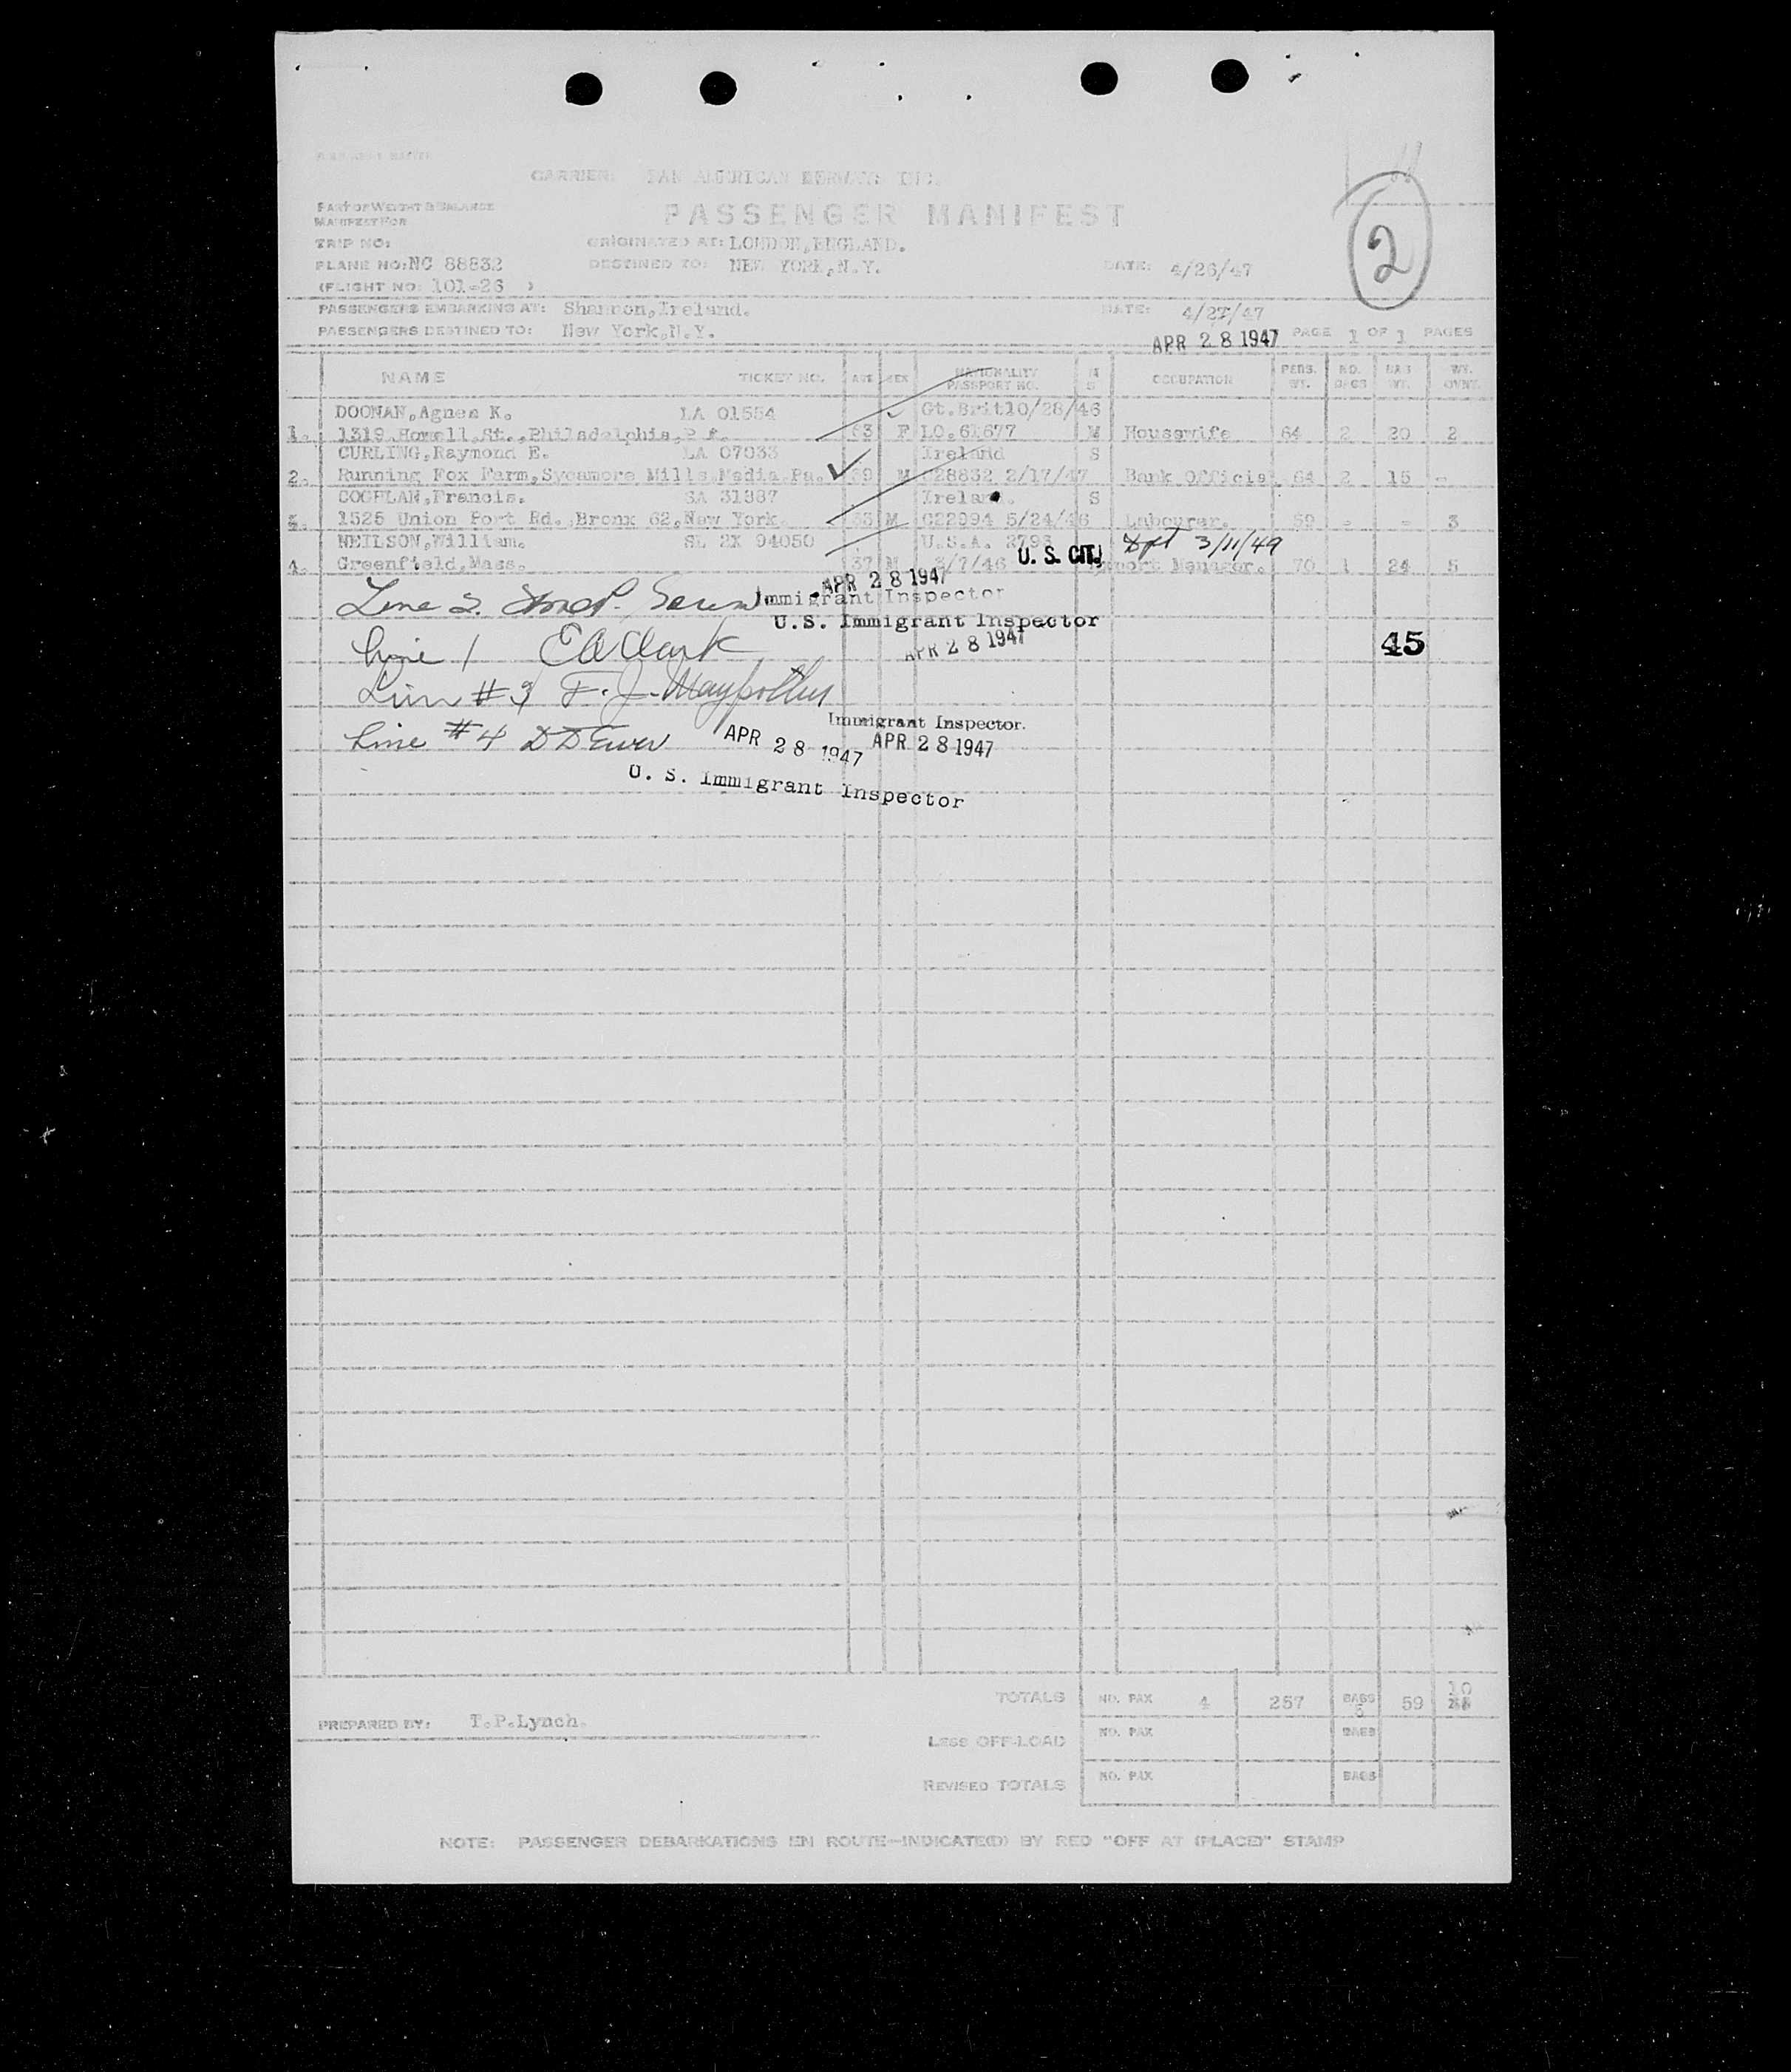 CARRIER: PAN AMERICAN AIRWAYS INC.
PART OF WEIGHT & BALANCE
MANIFEST FOR
PASSENGER MANIFEST
2
TRIP NO:
ORIGINATED AT: LONDON, ENGLAND.
PLANE NO: NC 88832
DESTINED TO: NEW YORK, N.Y.
DATE: 4/26/47
(FLIGHT NO: 101-26 )
PASSENGERS EMBARKING AT: Shannon, Ireland.
DATE: 4/27/47
PASSENGERS DESTINED TO: New York, N.Y.
APR 28 1947 PAGE 1 OF 1 PAGES
NAME TICKET NO. AGE SEX NATIONALITY PASSPORT NO. M S OCCUPATION PERS. WT. NO. BAGS BAG WT. WT. OVWT.
DOONAN, Agnes K. LA 01554 Gt.Brit10/28/46
1. 1319 Howell St., Philadelphia, Pa. 63 F LO.61677 M Housewife 64 2 20 2
CURLING, Raymond E. LA 07033 Ireland S
2. Running Fox Farm, Sycamore Mills, Media, Pa. 39 M C28832 2/17/47 Bank Official 64 2 15 -
COGHLAN, Francis. SA 31387 Ireland. S
1525 Union Port Rd., Bronx 62, New York. M C22994 5/24/46 Labourer. 59 - - 3
NEILSON, William. SL 2X 94050 U.S.A. 2793 Dpt 3/11/49
4. Greenfield, Mass. 37 M 3/7/46 U. S. CIT. Export Manager. 70 1 24 5
APR 28 1947
Line 2. Immigrant Inspector
U.S. Immigrant Inspector
Line 1 E A Clark APR 28 1947
45
Line #3 F. J.
Immigrant Inspector.
Line #4 APR 28 1947 APR 28 1947
U. S. Immigrant Inspector
TOTALS NO. PAX 4 257 BAGS 5 59 10
PREPARED BY: T.P.Lynch.
LESS OFF-LOAD NO. PAX BAGS
REVISED TOTALS NO. PAX BAGS
NOTE: PASSENGER DEBARKATIONS EN ROUTE-INDICATE(D) BY RED "OFF AT (PLACE)" STAMP